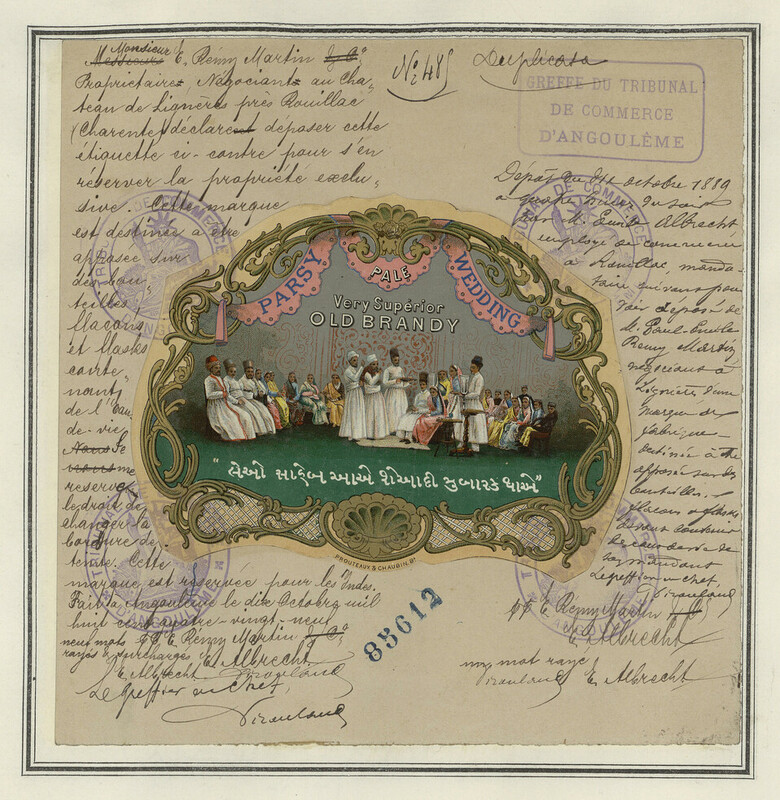 Monsieur
Messieurs E. Rémy Martin & Cº
Propriétaires, Négociants au Châ-
teau de Lignères près Rouillac
(Charente) déclarent déposer cette
étiquette ci-contre pour s'en
réserver la propriété exclu-
sive. Cette marque
est destinée à être
apposée sur
des bou-
teilles
flacons
et flasks
conte-
nant
de l'Eau
de-vie
Nous Se
me
réserve
le droit de
changer la
bordure de
teinte. Cette
marque est réservée pour les Indes.
Fait à Angoulême le dix Octobre mil
huit cent quatre-vingt-neuf
neuf mots pp E. Rémy Martin & Cº
rayés & surchargés E. Albrecht
E. Albrecht
Le greffier en chef,
Nº 485
Duplicata
GREFFE DU TRIBUNAL
DE COMMERCE
D'ANGOULÊME
PARSY
PALE
WEDDING
Very Supérior
OLD BRANDY
"લેઓ સાહેબ આએ શેઆદી મુબારક થાએ"
PROUTEAUX & CHAUBIN, Bx
85612
Dépôt du dix octobre 1889
à quatre heures du soir
par M. Emile Albrecht
employé de commerce
à Rouillac, manda-
taire suivant pou-
voir déposé de
M. Paul-Emile
Rémy Martin,
négociant à
Lignères d'une
marque de
fabrique
destinée à être
apposée sur des
bouteilles,
flacons & flasks
devant contenir
Le greffier en chef,
pp E. Rémy Martin & Cº
E. Albrecht
un mot rayé
E. Albrecht